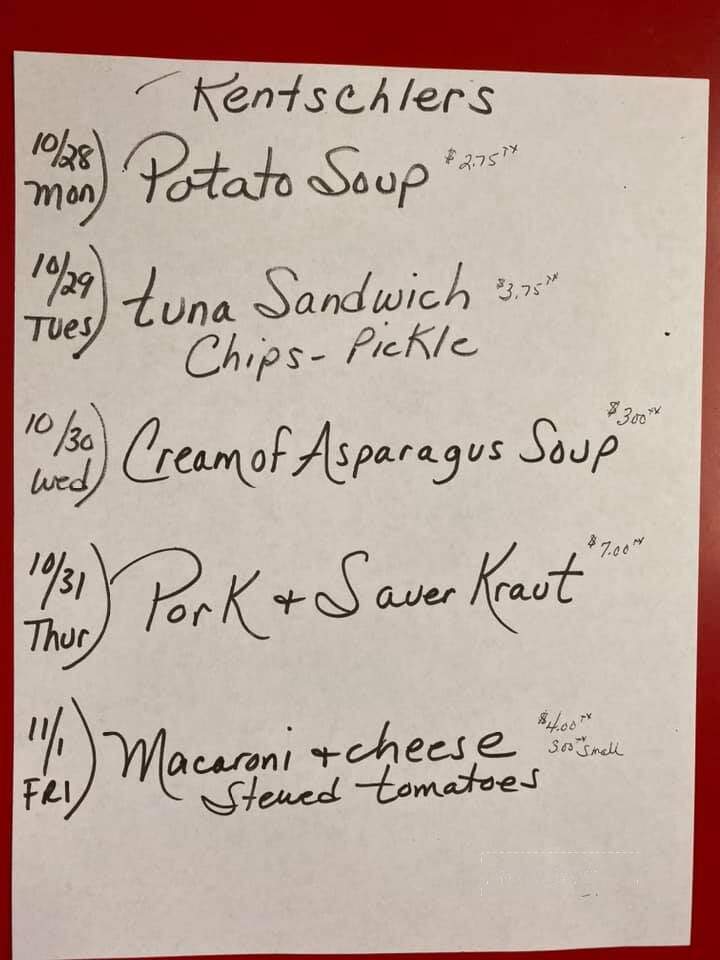 Kentschlers
10/28 Mon) Potato Soup $2.75 TX
10/29 Tues) tuna Sandwich $3.75 TX
Chips - Pickle
10/30 Wed) Cream of Asparagus Soup $3.00 TX
10/31 Thur) Pork + Sauer Kraut $7.00 TX
11/1 FRI) Macaroni + cheese $4.00 TX
3.00 TX Small
Stewed tomatoes